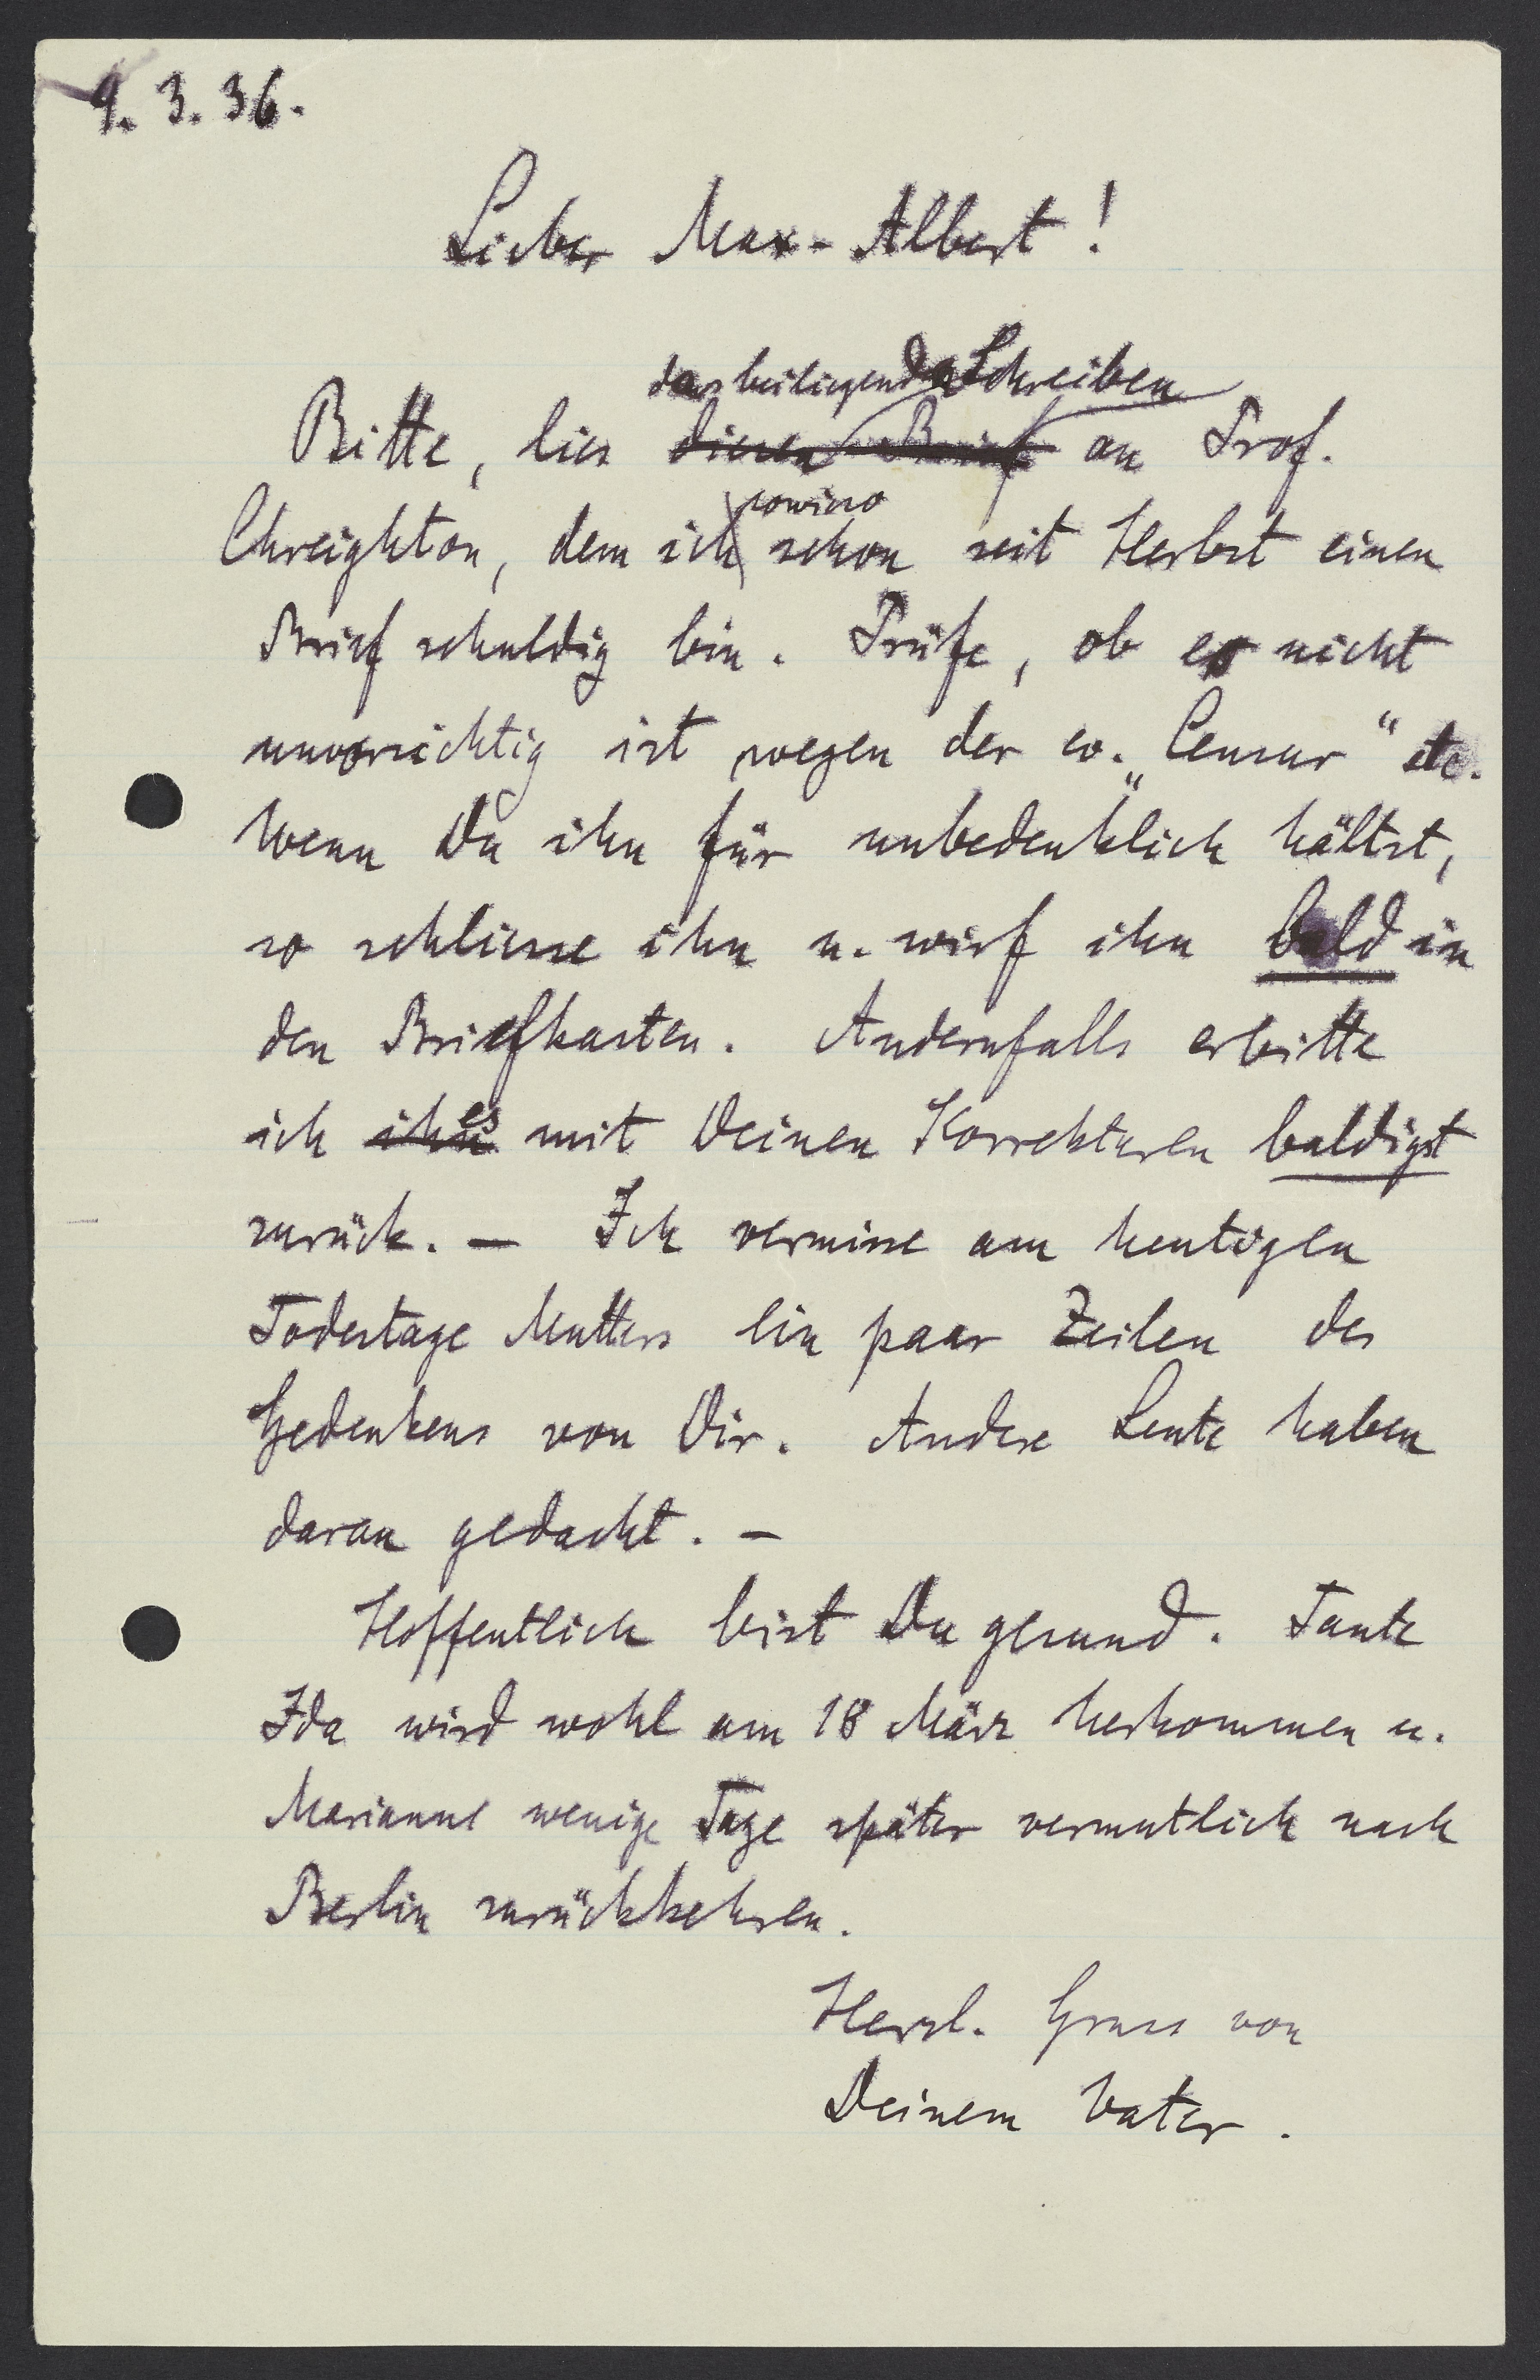 9. 3. 36.
Lieber Max-Albert!
das beiliegende Schreiben
Bitte, lies diesen Brief an Prof.
sowieso
Chreighton, dem ich schon seit Herbst einen
Brief schuldig bin. Prüfe, ob es nicht
unvorsichtig ist wegen der ev. „Censur" etc.
Wenn Du ihn für unbedenklich hältst,
so schliesse ihn u. wirf ihn bald in
den Briefkasten. Andernfalls erbitte
es
ich ihn mit Deinen Korrekturen baldigst
zurück. — Ich vermisse am heutigen
Todestage Mutters ein paar Zeilen des
Gedenkens von Dir. Andere Leute haben
daran gedacht. —
Hoffentlich bist Du gesund. Tante
Ida wird wohl am 18 März herkommen u.
Marianne wenige Tage später vermutlich nach
Berlin zurückkehren.
Herzl. Gruss von
Deinem Vater.